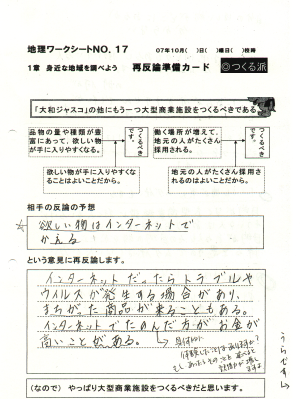 地理ワークシートNO. 17
07年10月( )日( )曜日( )校時
1章 身近な地域を調べよう 再反論準備カード ◎つくる派
「大和ジャスコ」の他にもう一つ大型商業施設をつくるべきである
品物の量や種類が豊富にあって、欲しい物が手に入りやすくなる。
つくるべきです。
働く場所が増えて、地元の人がたくさん採用される。
つくるべきです。
欲しい物が手に入りやすくなることはよいことだから。
地元の人がたくさん採用されるのはよいことだから。
相手の反論の予想
欲しい物はインターネットで
かえる
という意見に再反論します。
インターネットだったらトラブルや
ウイルスが発生する場合があり、
まちがった商品が来ることもある。
インターネットでたのんだ方がお金が
高いことがある。
(なので) やっぱり大型商業施設をつくるべきだと思います。